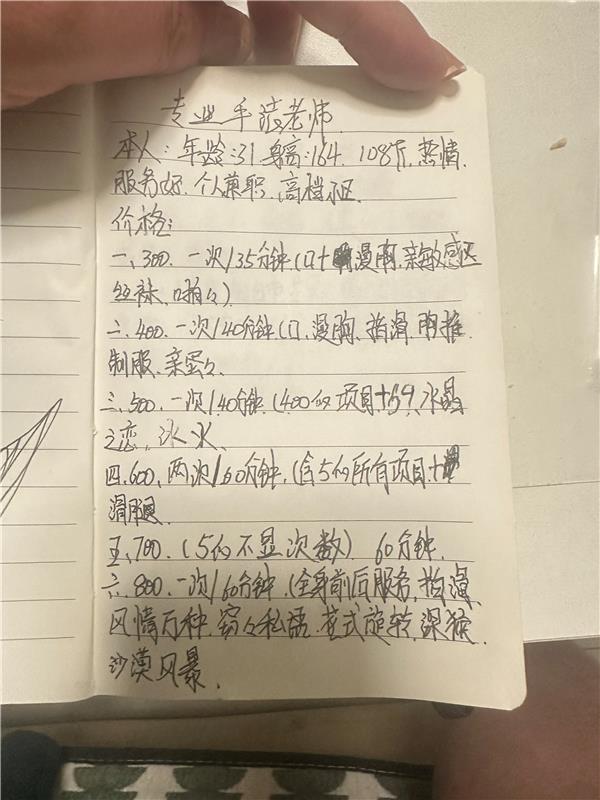 专业手法老师
本人:年龄:31 身高:164. 108斤,热情.
服务好.个人兼职,高档小区
价格:
一、300. 一次/35分钟(口+漫胸,亲敏感区
丝袜、啪々)
二、400. 一次/40分钟(口、漫胸、指滑、胸推
制服、亲蛋々
三、500. 一次/40分钟(400的项目+69、冰晶
之恋,冰火
四、600、两次/60分钟,(含5的所有项目+
滑腿
五、700.(5的不显次数)60分钟.
六、800. 一次/60分钟(全身前后服务,指滑
风情万种,窃々私语、花式旋转,深猴
沙漠风暴.